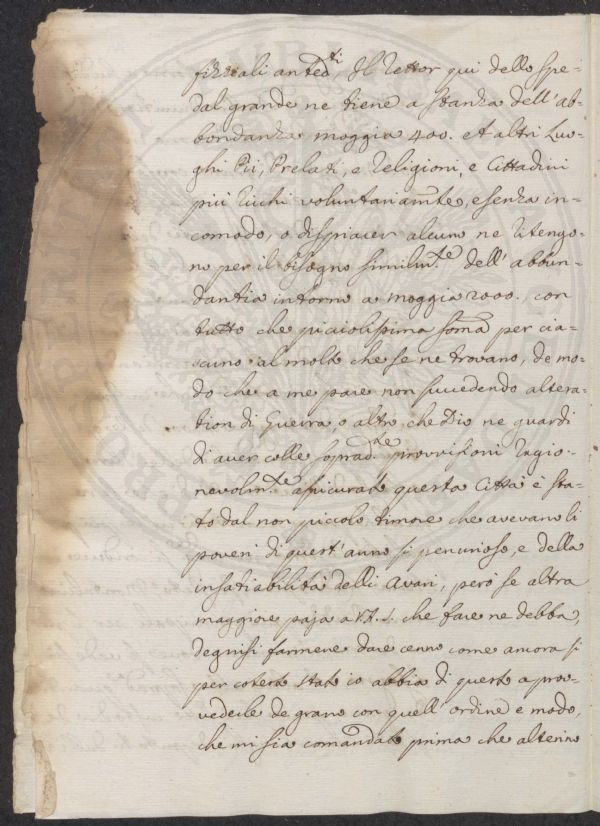 fizziali anted.ti, Il Rettor qui dello Spe-
dal grande ne tiene a stanza dell'ab-
bondanza moggia 400. et altri Luo-
ghi Pii, Prelati, e Religioni, e Cittadini
più ricchi voluntariam.te, e senza in-
comodo, o dispiacer alcuno ne ritengo-
no per il bisogno similm.te dell'abbun-
dantia intorno a moggia 2000., con
tutto che picciolissima somã per cia-
scuno al molto che se ne trovano, de mo-
do che a me pare non succedendo altera-
tion di Guerra o altro che Dio ne guardi
di aver colle soprad.te provvisioni ragio-
nevolm.te assicurato questa Città e sta-
to dal non piccolo timore che avevano li
poveri di quest'anno sì penurioso, e della
insatiabilità delli Avari, però se altra
maggiore paja a V.A.I. che fare ne debba,
degnisi farmene dare cenno come ancora si
per cotesto stato io abbia di questo a prov-
vederle de grano con quell'ordine e modo,
che mi sia comandato prima che alterino